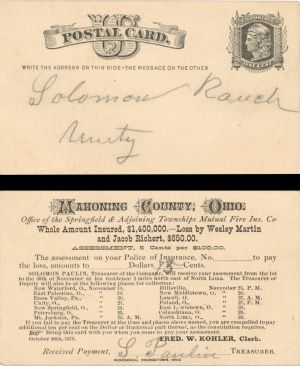 US
POSTAL CARD.
U.S. POSTAGE
ONE CENT
WRITE THE ADDRESS ON THIS SIDE-THE MESSAGE ON THE OTHER
Solomon Rauch
Unity
MAHONING COUNTY, OHIO.
Office of the Springfield & Adjoining Townships Mutual Fire Ins. Co
Whole Amount Insured, $1,400,000.—Loss by Wesley Martin
and Jacob Richert, $650.00.
ASSESSMENT, 5 Cents per $100.00.
The assessment on your Policy of Insurance, No. to pay
the loss, amounts to Dollars Cents.
SOLOMON PAULIN, Treasurer of the Company, will receive your assessment from the 1st
to the 25th of November at his residence 2 miles north east of North Lima. The Treasurer or
Deputy will also be at the following places for collection:
New Waterford, O., November 18, Hillsville, November 25, P. M.
East Palestine, O., New Middletown, O.,
Enon Valley, Pa., Lowell, O. A. M.
Unity, O., Poland, O., P. M.
New Springfield, O.,
Petersburg, O., Columbiana, O.
Mt. Jackson, Pa., North Lima, O.,
If you fail to pay the Treasurer at the time and places above named, you are compelled to
additional ten per cent on the Dollar or fractional part thereof, as the constitution requires.
Bring this card with you when you come to pay your assessment.
October 28th, 1878. FRED. W. KOHLER, Clerk.
Received Payment, S. Paulin TREASURER.